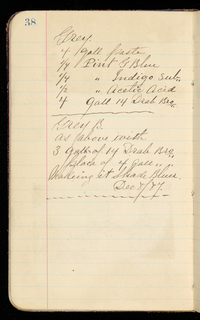 38
Grey.
4 gall paste
1/4 Pint G. Blue
1/4 " Indigo Sub.
1/2 " Acetic Acid
4 gall 14 Drab Brg.
Grey B.
as above with
3 galls of 14 Drab Brg.
place of 4 gall
making it shade Bluer
Dec 7/87.